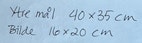 Ytre mål 40x35 cm
Bilde 16x20 cm